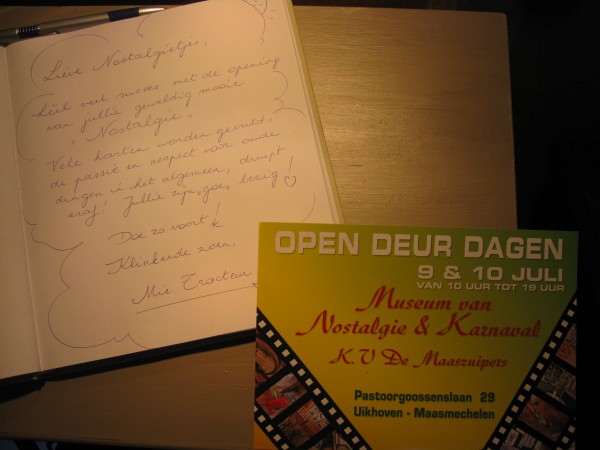 Liève Nostalgietjes,
Héél veel succes met de opening
van jullie geweldig mooie
"Nostalgie".
Vele harten worden gevuld,
de passie en respect voor oude
dingen in het algemeen, druipt
eraf! Jullie zijn goe bezig!
Doe zo voort!
Klinkende zoen,
Mie Tracteur
OPEN DEUR DAGEN
9 & 10 JULI
VAN 10 UUR TOT 19 UUR
Museum van
Nostalgie & Karnaval
K.V De Maaszuipers
Pastoorgoossenslaan 29
Uikhoven - Maasmechelen